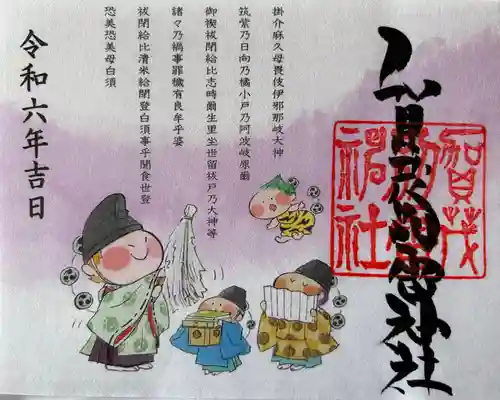 賀茂別雷神社
賀茂
神社
掛介麻久母畏伎伊邪那岐大神
筑紫乃日向乃橘小戸乃阿波岐原爾
御禊祓閇給比志時爾生里坐世留祓戸乃大神等
諸々乃禍事罪穢有良牟乎婆
祓閇給比清米給閇登白須事乎聞食世登
恐美恐美母白須
令和六年吉日